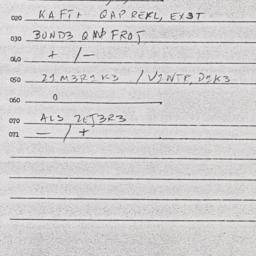 020 KAFFI QAP REKL, EXST
030 BUND3 QAP FROT
040 + /-
050 21M3R2K3 /V1NTR, D2K3
060 0
070 ALS 2ET3R3
071 - / +